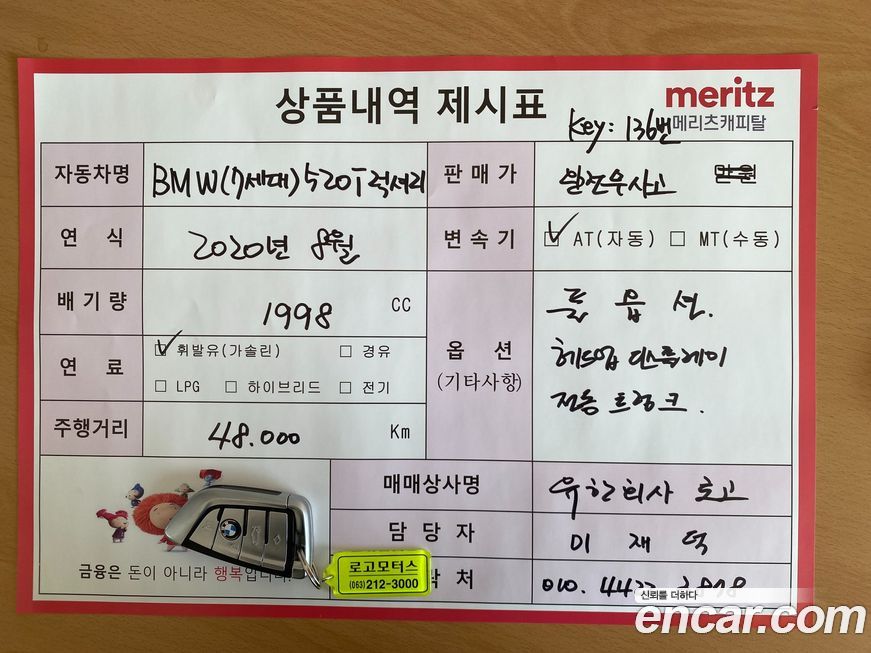 상품내역 제시표
meritz
메리츠캐피탈
Key: 136번
자동차명 BMW(7세대) 520i 럭셔리 판매가 완전무사고 만원
연식 2020년 8월 변속기 ☑ AT(자동) □ MT(수동)
배기량 1998 CC
옵션 (기타사항) 풀 옵션.
헤드업 디스플레이
전동 트렁크.
연료 ☑ 휘발유(가솔린) □ 경유
□ LPG □ 하이브리드 □ 전기
주행거리 48.000 Km
매매상사명 유한회사 로고
담당자 이재덕
락처 010.
금융은 돈이 아니라 행복입니다.
로고모터스
(063)212-3000
신뢰를 더하다
encar.com